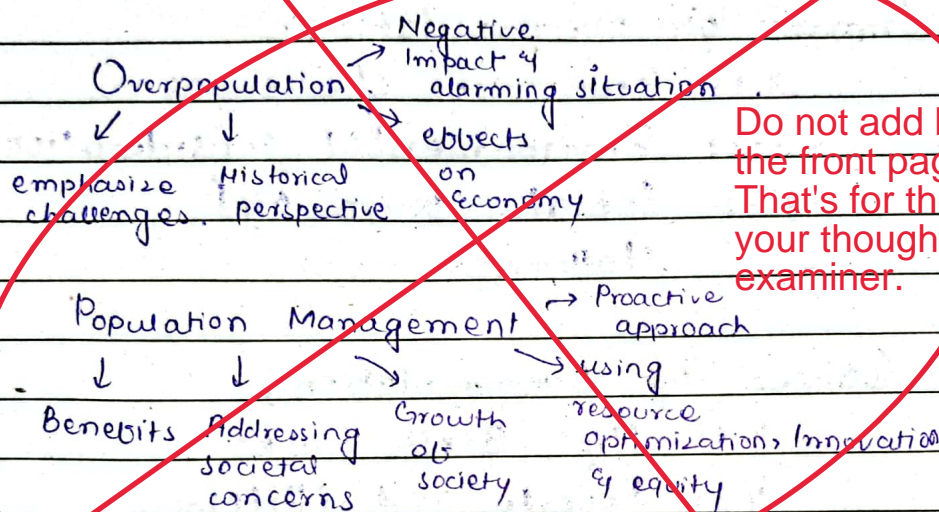 Negative
Overpopulation. Impact &
alarming situation.
effects
on
Economy.
emphasize challenges.
Historical perspective
Do not add
the front pag
That's for th
your though
examiner.
Population Management
Proactive
approach
using
resource
optimization, Innovation
& equity
Benefits
Addressing
societal
concerns
Growth
of
society.